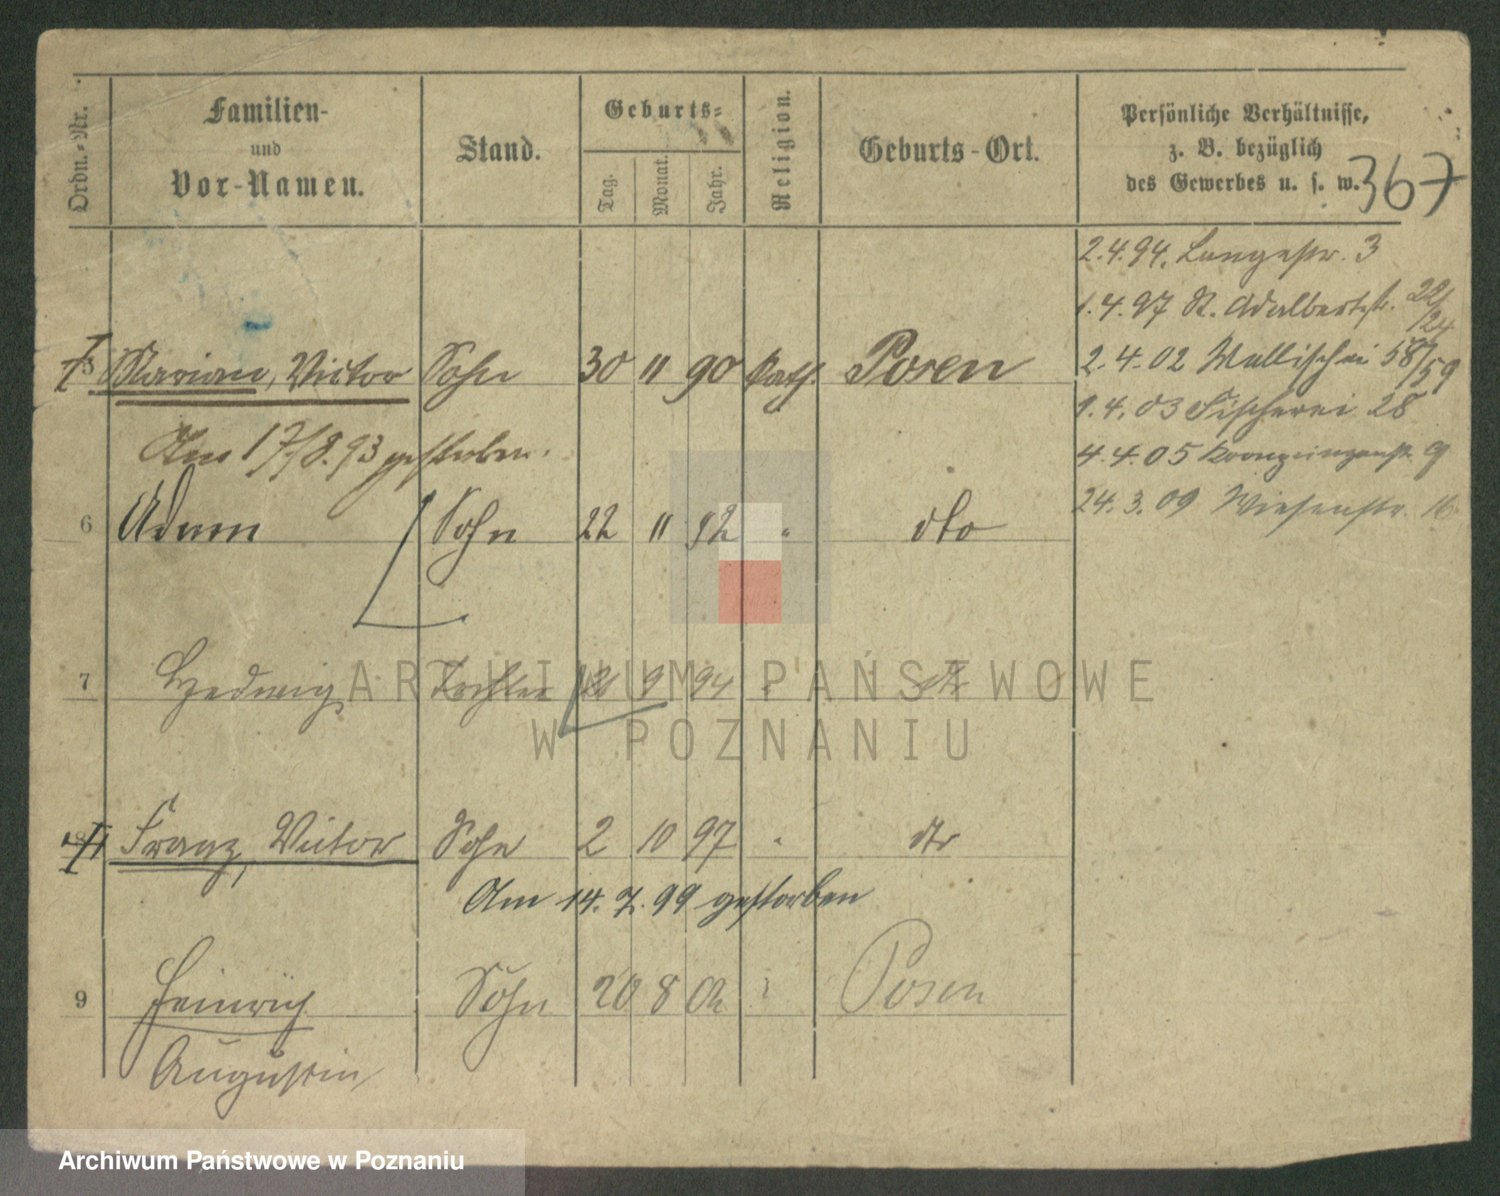 Ordn.-Nr.
Familien-
und
Vor-Namen.
Stand.
Geburts-
Tag.
Monat.
Jahr.
Religion.
Geburts-Ort.
Persönliche Verhältnisse,
z. B. bezüglich
des Gewerbes u. s. w.
367
2.4.94. Langestr. 3
1.4.97 St. Adalbertstr. 22/24
2.4.02 Wallischei 58/59
1.4.03 Fischerei 28
4.4.05 Kronprinzenstr. 9
24.3.09 Wiesenstr. 16
Marian, Victor Sohn 30 11 90 kath. Posen
Am 17/8.93 gestorben.
6 Adam Sohn 22 11 92 " dto
7 Hedwig Tochter 9 94 " dto
Franz, Victor Sohn 2 10 97 " dto
Am 14.7.99 gestorben
9 Heinrich Sohn 20 8 02 Posen
Augustin
ARCHIWUM PAŃSTWOWE
W POZNANIU
Archiwum Państwowe w Poznaniu